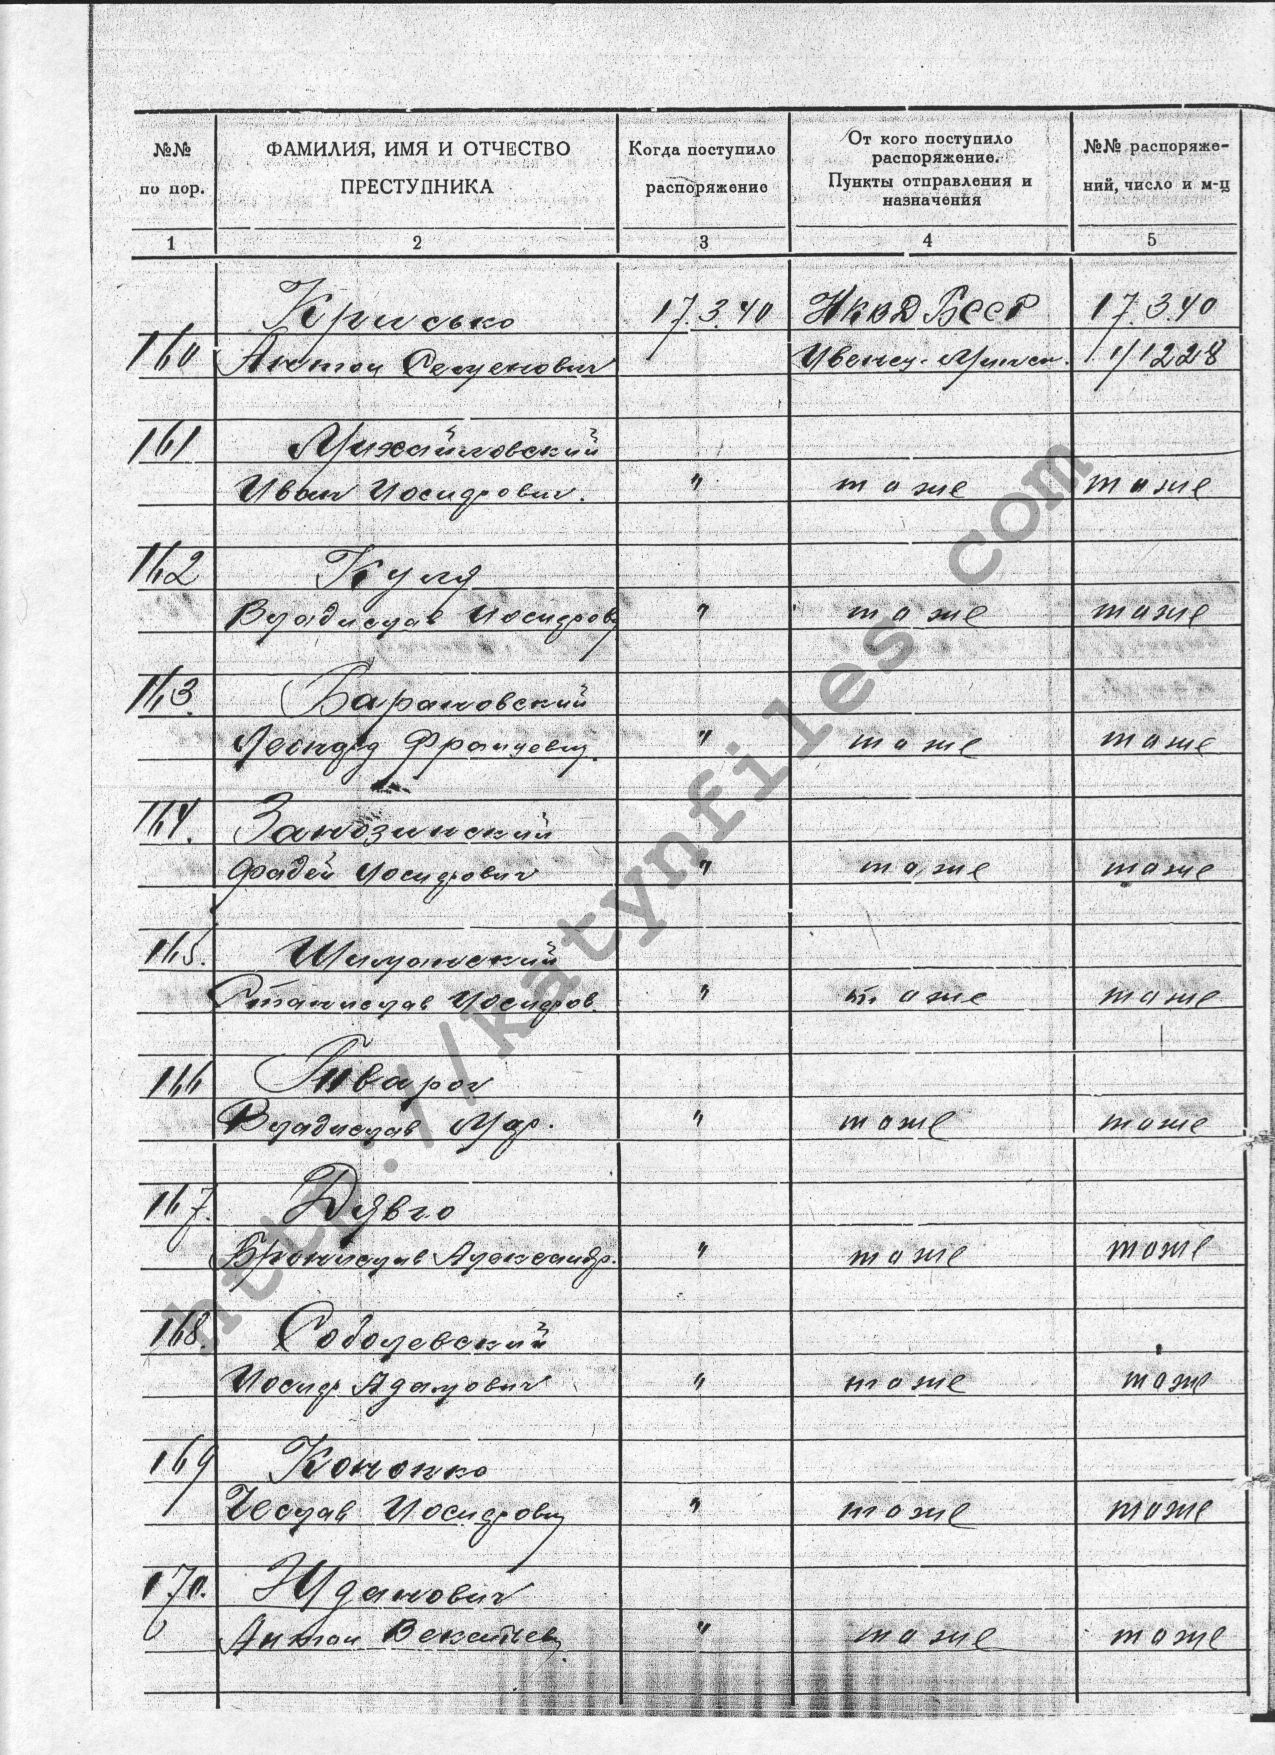 №№ по пор.
ФАМИЛИЯ, ИМЯ И ОТЧЕСТВО ПРЕСТУПНИКА
Когда поступило распоряжение
От кого поступило распоряжение. Пункты отправления и назначения
№№ распоряжений, число и м-ц
1 2 3 4 5
Крисько 17.3.40 НКВД БССР 17.3.40
160 Антон Семенович Ивенец-Минск. 1/1228
161 Михайловский
Иван Иосифович. " тоже тоже
162 Куля
Владислав Иосифов " тоже тоже
163. Барановский
Леонард Францевич. " тоже тоже
164. Занозинский
Фадей Иосифович " тоже тоже
165. Шиманский
Станислав Иосифов. " тоже тоже
166
Владислав " тоже тоже
167.
Бронислав Александр. " тоже тоже
168. Соболевский
Иосиф Адамович " тоже тоже
169 Кононко
Чеслав Иосифович " тоже тоже
170. Жданович
Антон " тоже тоже
http://katynfiles.com